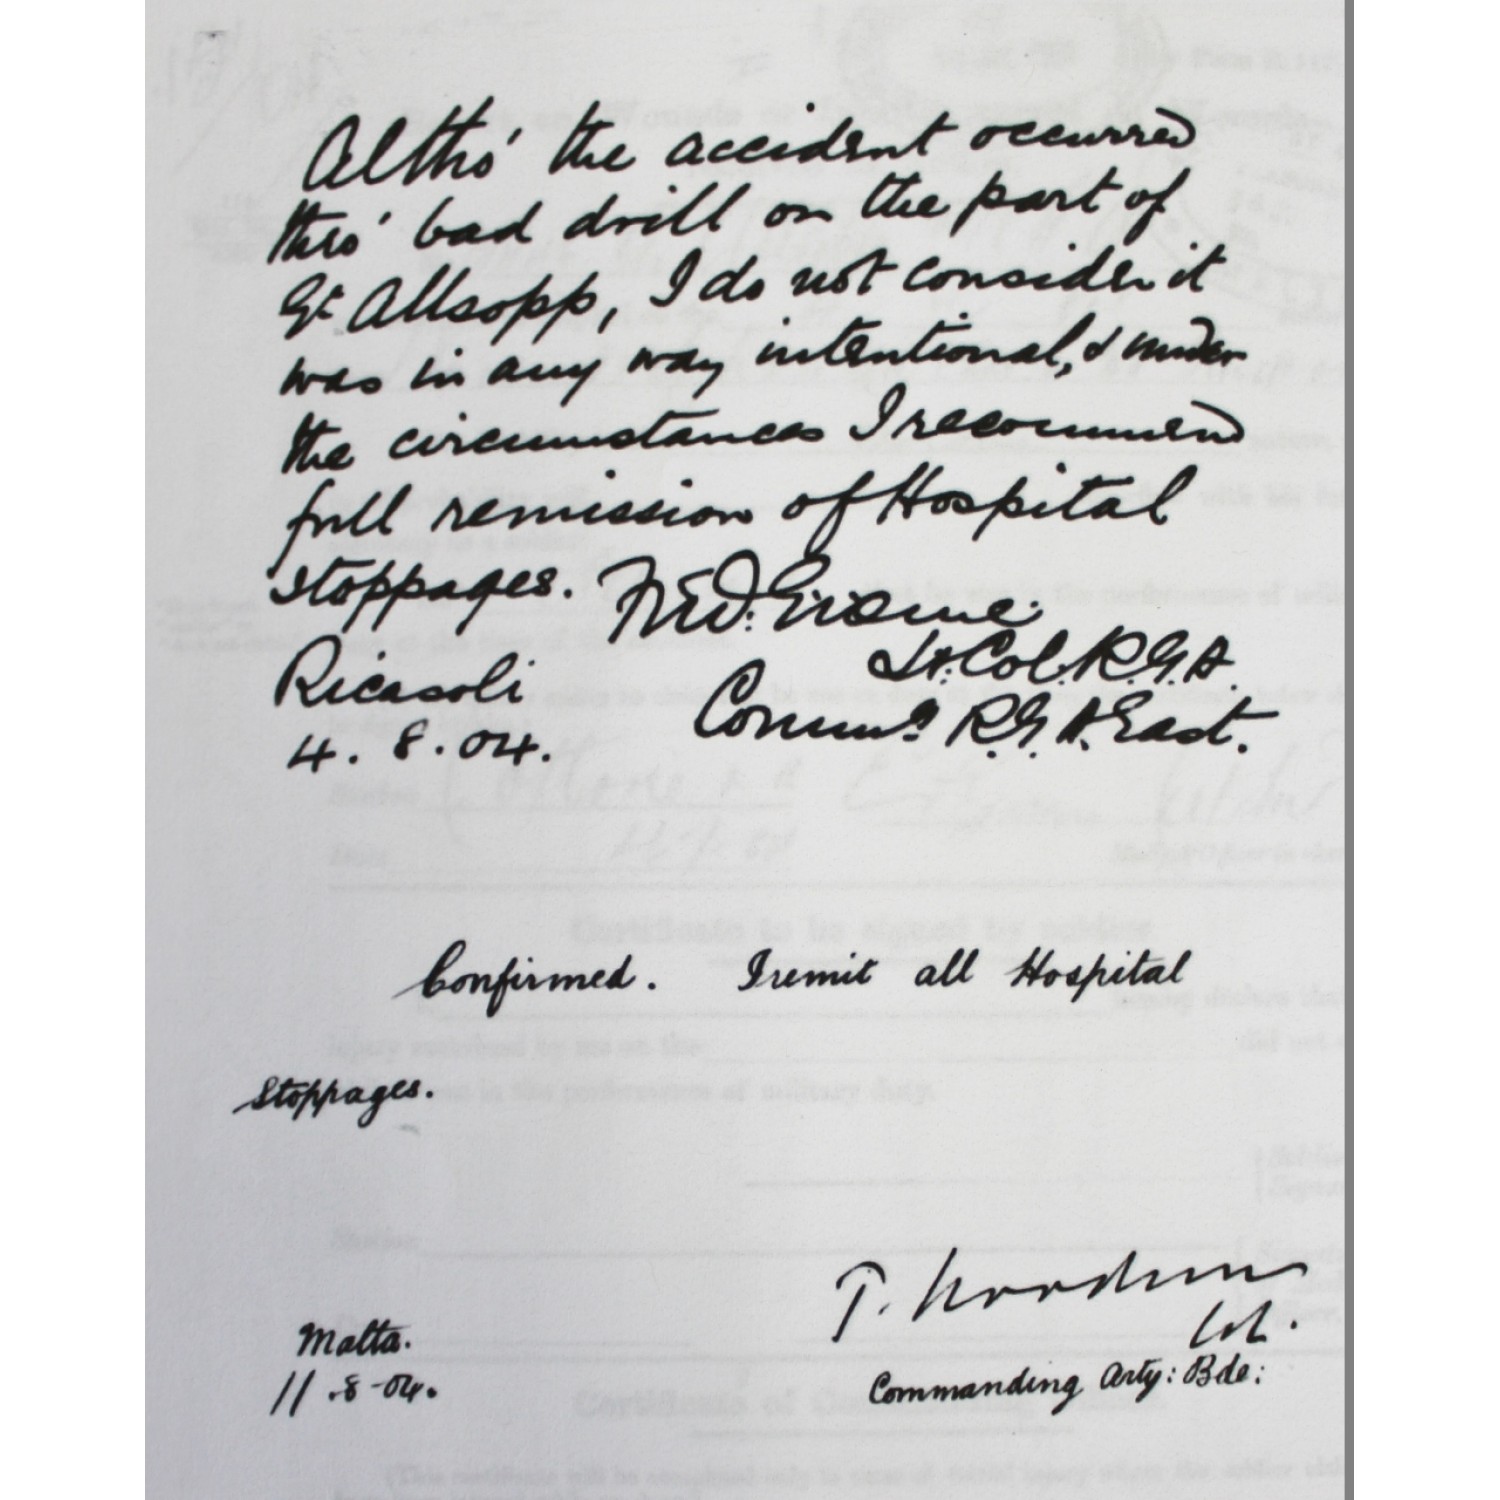 Altho' the accident occurred
thro' bad drill on the part of
Gr Allsopp, I do not consider it
was in any way intentional, & under
the circumstances I recommend
full remission of Hospital
stoppages.
Lt. Col. R.G.A.
Ricasoli
Commdg R.G.A. East.
4. 8. 04.
Confirmed. I remit all Hospital
Stoppages.
T.
Col.
Malta.
11.8-04.
Commanding Arty: Bde: